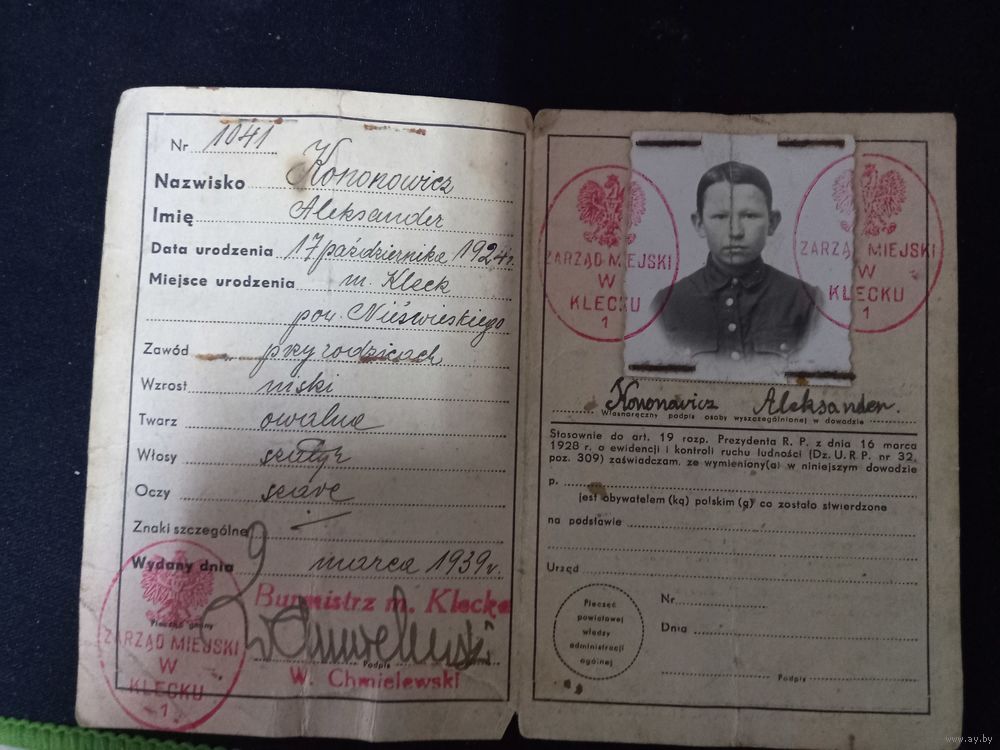 Nr 1041
Nazwisko Kononowicz
Imię Aleksander
Data urodzenia 17 października 1924 r.
Miejsce urodzenia m. Kleck
pow. Nieświeskiego
Zawód przy rodzicach
Wzrost niski
Twarz owalna
Włosy
Oczy szare
Znaki szczególne
Wydany dnia 9 marca 1939 r.
Burmistrz m. Klecka
Pieczęć gminy
Podpis
W. Chmielewski
ZARZĄD MIEJSKI
W
KLECKU
1
ZARZĄD MIEJSKI
W
KLECKU
1
ZARZĄD MIEJSKI
W
KLECKU
1
Kononowicz Aleksander.
Własnoręczny podpis osoby wyszczególnionej w dowodzie
Stosownie do art. 19 rozp. Prezydenta R. P. z dnia 16 marca
1928 r. o ewidencji i kontroli ruchu ludności (Dz. U. R. P. nr 32,
poz. 309) zaświadczam, że wymieniony(a) w niniejszym dowodzie
p.
jest obywatelem (ką) polskim (ą) co zostało stwierdzone
na podstawie
Urząd
Pieczęć
powiatowej
władzy
administracji
ogólnej
Nr.
Dnia
Podpis
www.ay.by